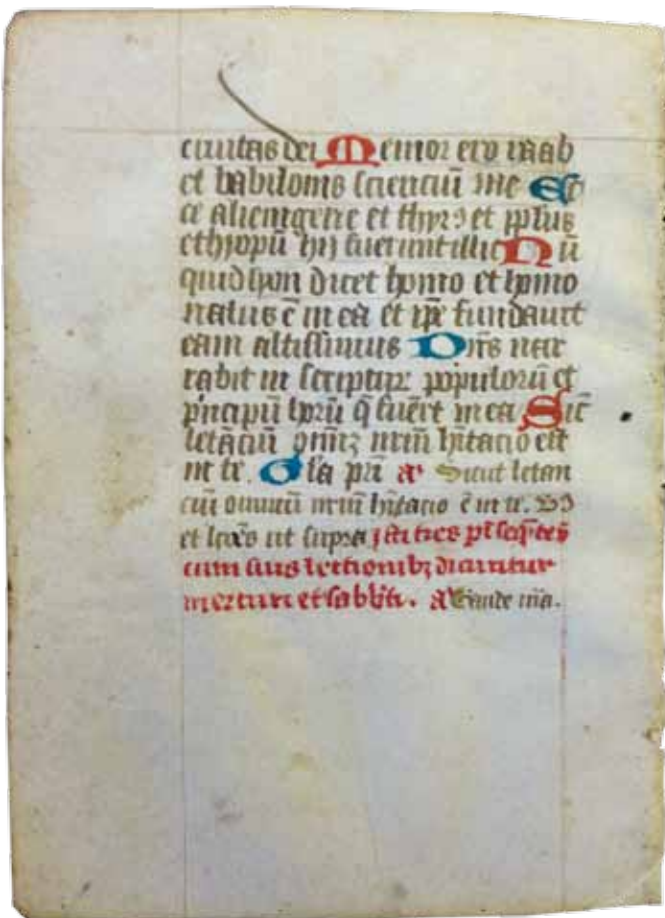 ciuitas dei Memor ero raab
et babilonis scienciū me Ec
ce alienigene et thyrꝰ et pplus
ethyopū hij fuerunt illic Nū
quid syon dicet homo et homo
natus ē in ea et ipe fundauit
eam altissimus Dn̄s nar
rabit in scripturꝭ populorū et
pncipū horū q̄ fuer̄t in ea Sic̄
letāciū om̄iꝫ nr̄m hītacio est
in te. Gl̓a pri a Sicut letan
ciū omniū nr̄m hītacio ē in te.
et lcōes ut supra Isti tres ps̄ seq̄tes
cum suis lectionibꝫ dicuntur
mercurii et sabb̄ti. a Gaude ma.